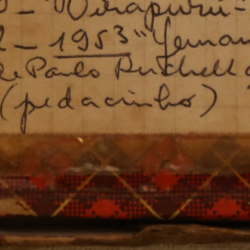 – Virapuru –
2 – 1953 "Jernan
de Paulo Burchell d
(pedacinho)